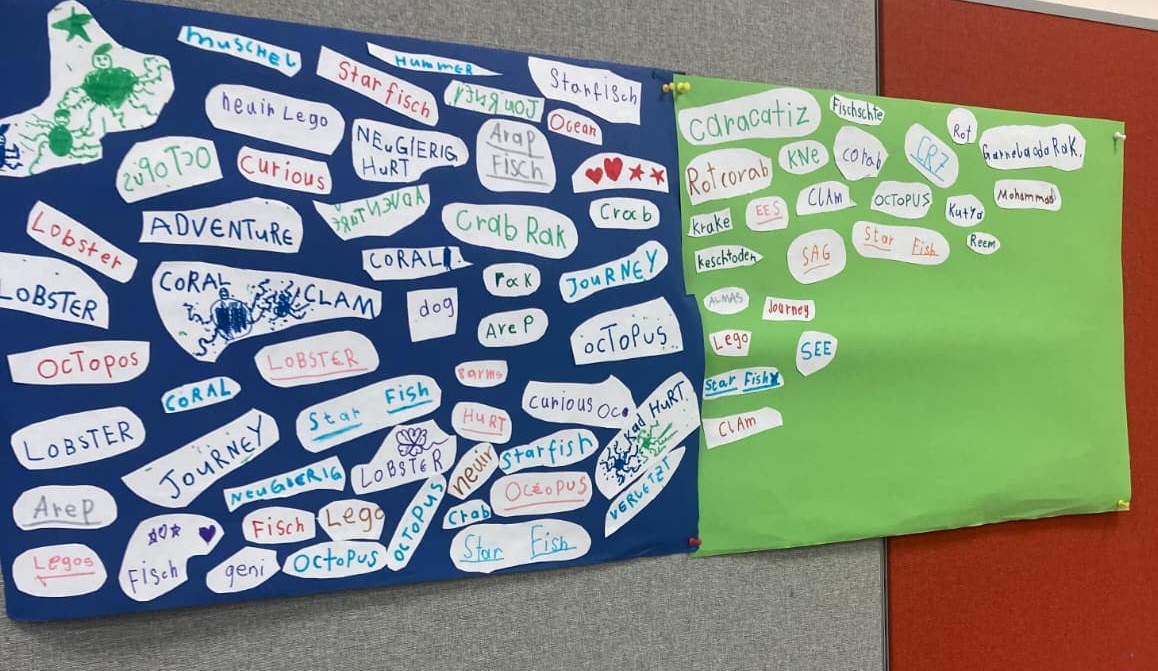 MUSCHEL
HUMMER
Starfisch
Starfisch
JOURNEY
Ocean
neuir Lego
NEuGIERIG
HuRT
Arap
Fisch
OCTOPUS
Curious
ADVENTuRE
ADVENTURE
Crab Rak
Crab
Lobster
LOBSTER
CORAL
CLAM
CORAL
rak
JOuRNEY
dog
AreP
OCTOPUS
OCTOPOS
LOBSTER
CORAL
Star Fish
LOBSTER
JOURNEY
NEUGIERIG
LOBSTER
HuRT
curious Oc
Kad HURT
VERLETZT
neuir
starfish
OCEOPUS
crab
OCTOPUS
AreP
Fisch
Lego
Fisch
geni
OCTOPUS
Star Fish
Legos
caracatiz
Fischschte
Rot
GarnelaadaRaK.
Rotcorab
KNE
corab
CRZ
krake
EES
CLAM
OCTOPUS
Kutya
Mohammad
keschtoden
SAG
Star Fish
Reem
ALMAS
Journey
Lego
SEE
Star Fish
CLAM